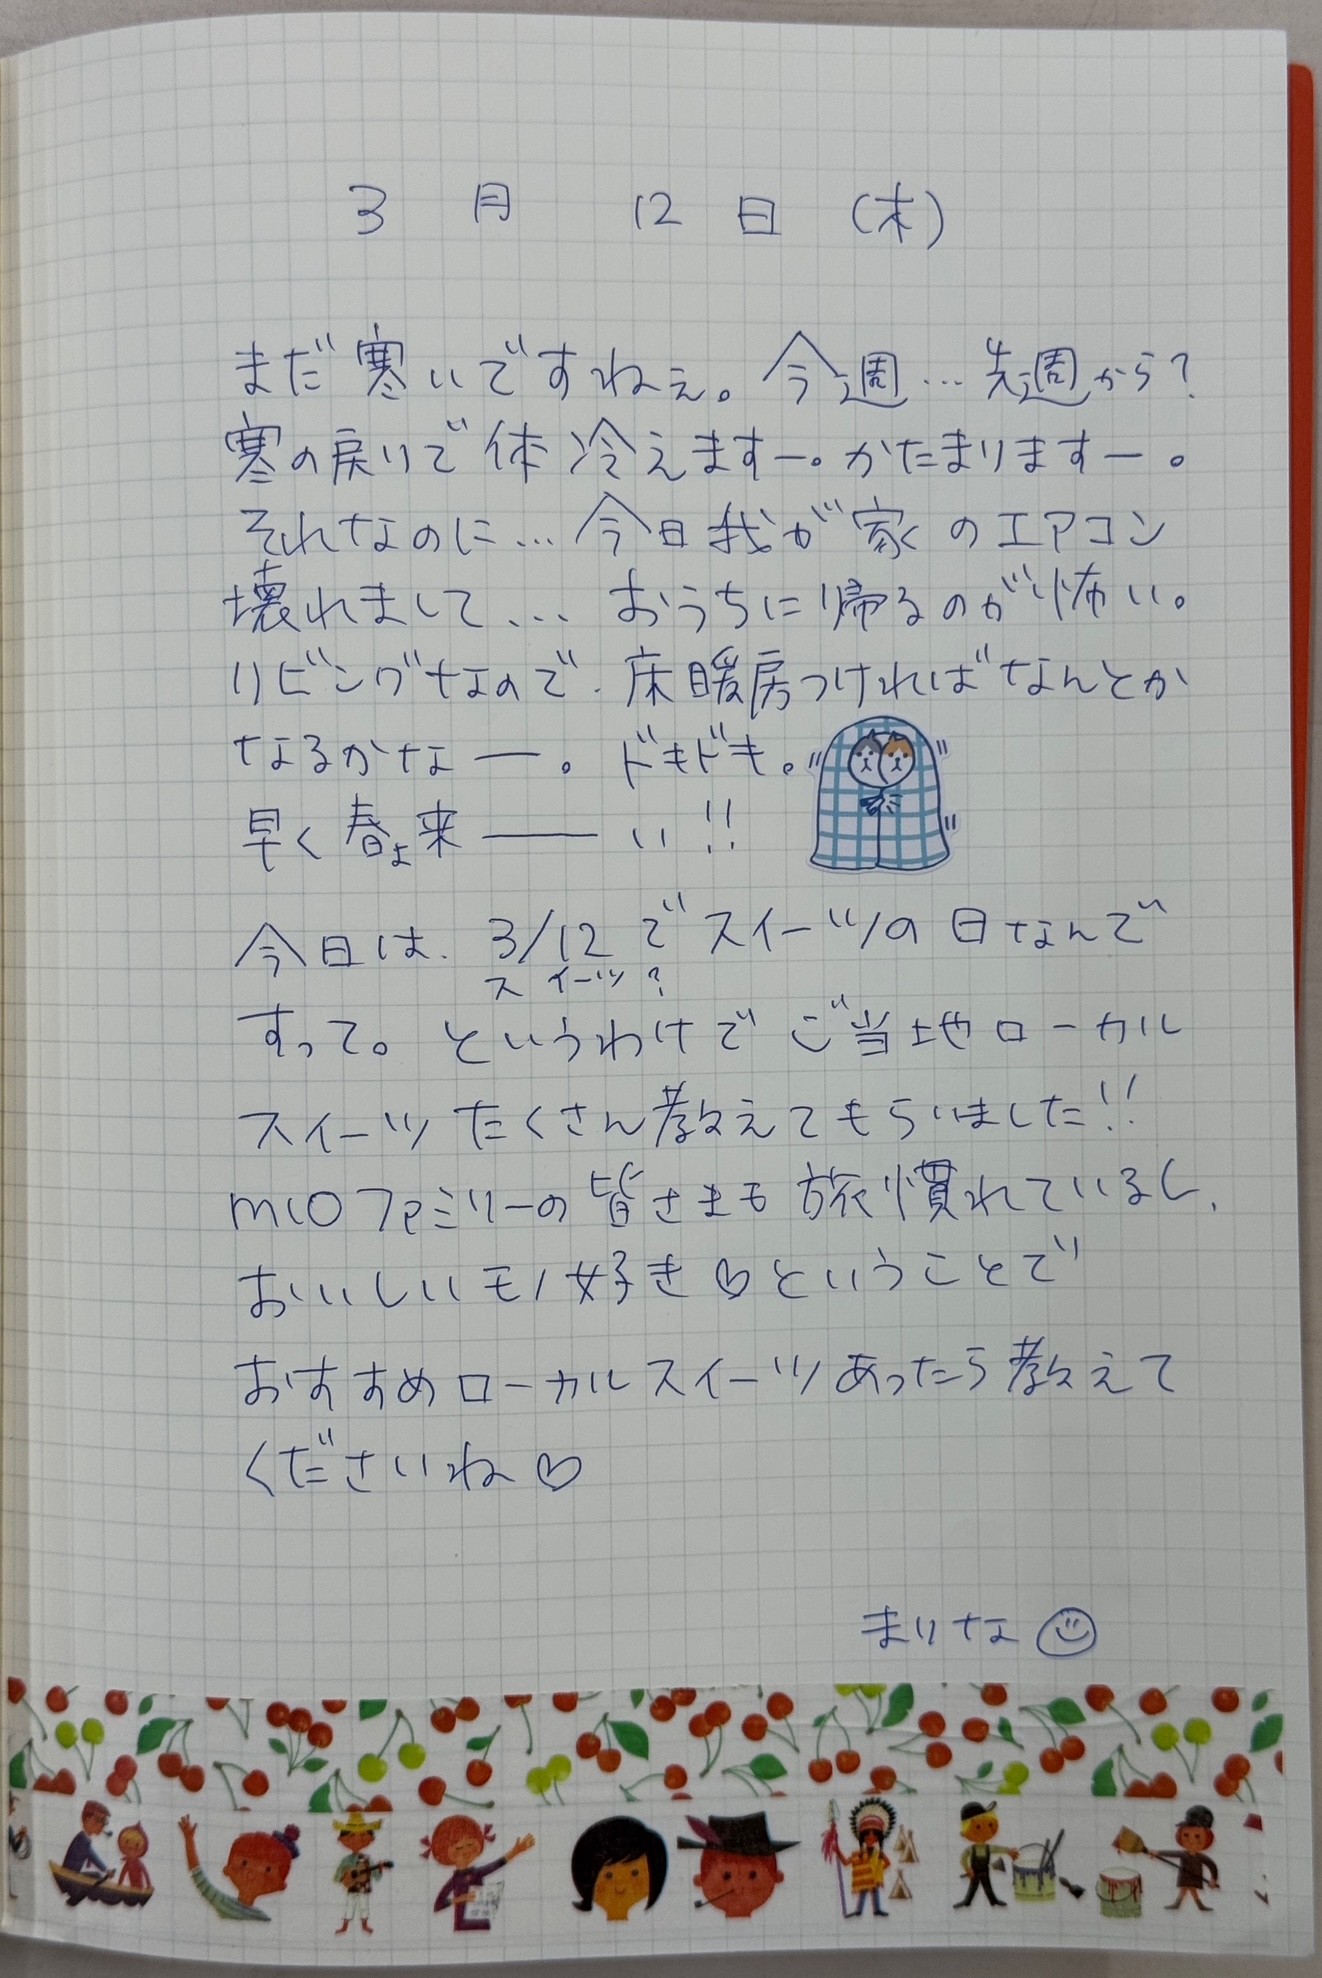 3月 12日 (木)
まだ寒いですねぇ。今週…先週から?
寒の戻りで体冷えますー。かたまりますー。
それなのに…今日我が家のエアコン
壊れまして… おうちに帰るのが怖い。
リビングなので、床暖房つければなんとか
なるかなー。ドキドキ。
早く春よ来――い!!
今日は、3/12でスイーツの日なんで
スイーツ?
すって。というわけでご当地ローカル
スイーツたくさん教えてもらいました!!
MCOファミリーの皆さまも旅慣れているし、
おいしいモノ好き♡ということで
おすすめローカルスイーツあったら教えて
くださいね♡
まりな☺